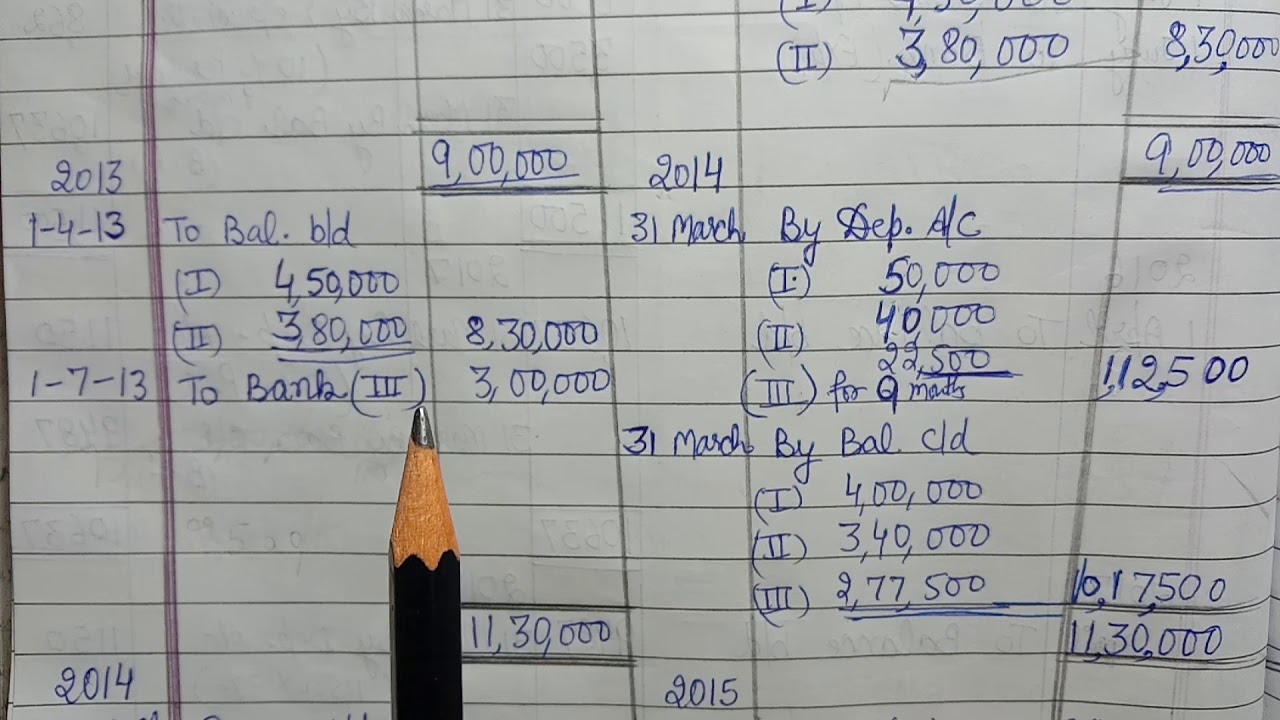 (II) 3,80,000 8,30,000
9,00,000 9,00,000
2013 2014
1-4-13 To Bal. b/d 31 March By Dep. A/C
(I) 4,50,000 (I) 50,000
(II) 3,80,000 8,30,000 (II) 40,000
22,500
1-7-13 To Bank (III) 3,00,000 (III) for 9 months 1,12,500
31 March By Bal. c/d
(I) 4,00,000
(II) 3,40,000
(III) 2,77,500 10,17,500
11,30,000 11,30,000
2014 2015